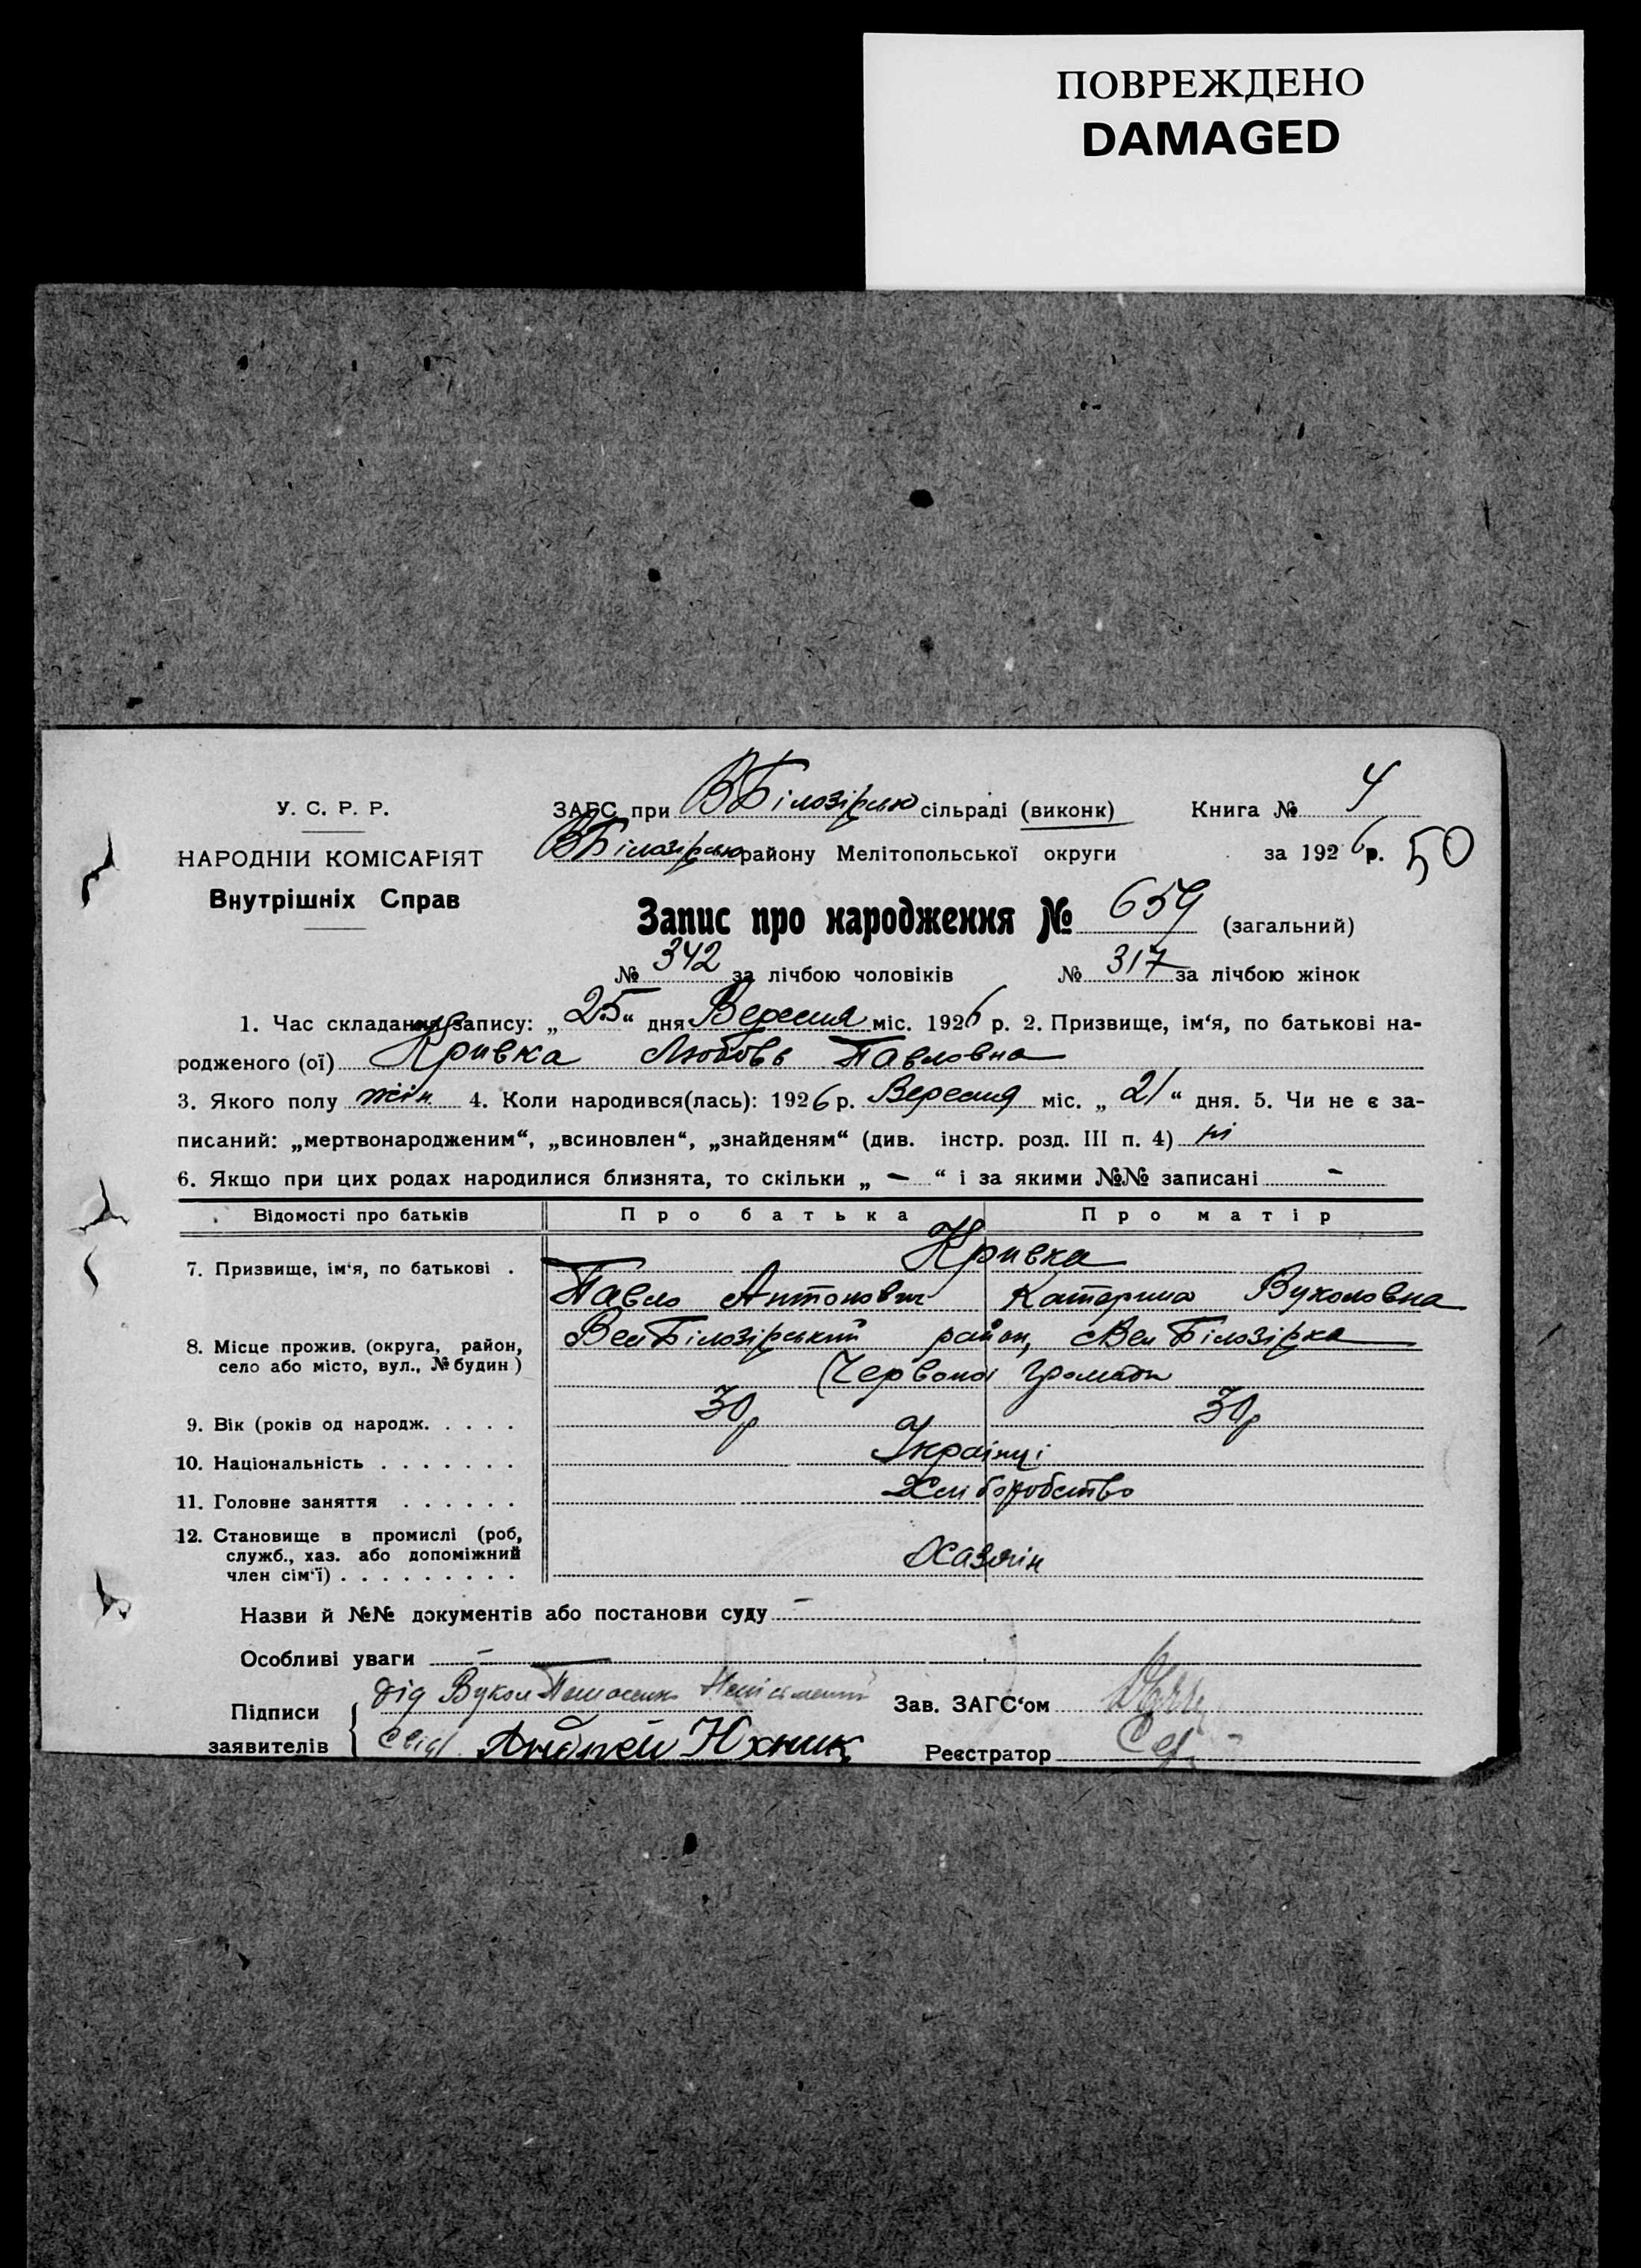 ПОВРЕЖДЕНО
DAMAGED
У. С. Р. Р.
НАРОДНІЙ КОМІСАРІЯТ
Внутрішніх Справ
ЗАГС при ВБілозірськ сільраді (виконк)
Книга № 4
ВБілозірськ району Мелітопольської округи
за 1926 р. 50
Запис про народження № 659 (загальний)
№ 342 за лічбою чоловіків № 317 за лічбою жінок
1. Час складання запису: „25“ дня Вересня міс. 1926 р. 2. Призвище, ім‘я, по батькові на-
родженого (ої) Кривка Любовь Павловна
3. Якого полу жін. 4. Коли народився(лась): 1926 р. Вересня міс. „21“ дня. 5. Чи не є за-
писаний: „мертвонародженим“, „всиновлен“, „знайденям“ (див. інстр. розд. III п. 4) ні
6. Якщо при цих родах народилися близнята, то скільки „ – “ і за якими №№ записані –
Відомості про батьків Про батька Про матір
7. Призвище, ім‘я, по батькові . Кривка
Павло Антонович Катерина Вуколовна
8. Місце прожив. (округа, район, ВелБілозірський район, Вел Білозірка
село або місто, вул., № будин) Червоної громади
9. Вік (років од народж. . . . . 30р 30р
10. Національність . . . . . . . Українці
11. Головне заняття . . . . . . Хліборобство
12. Становище в промислі (роб,
служб., хаз. або допоміжний Хазяїн
член сім‘ї) . . . . . . . . .
Назви й №№ документів або постанови суду –
Особливі уваги –
Підписи дід Вукол Неписьменний Зав. ЗАГС‘ом
заявителів свід. Андрей Реєстратор